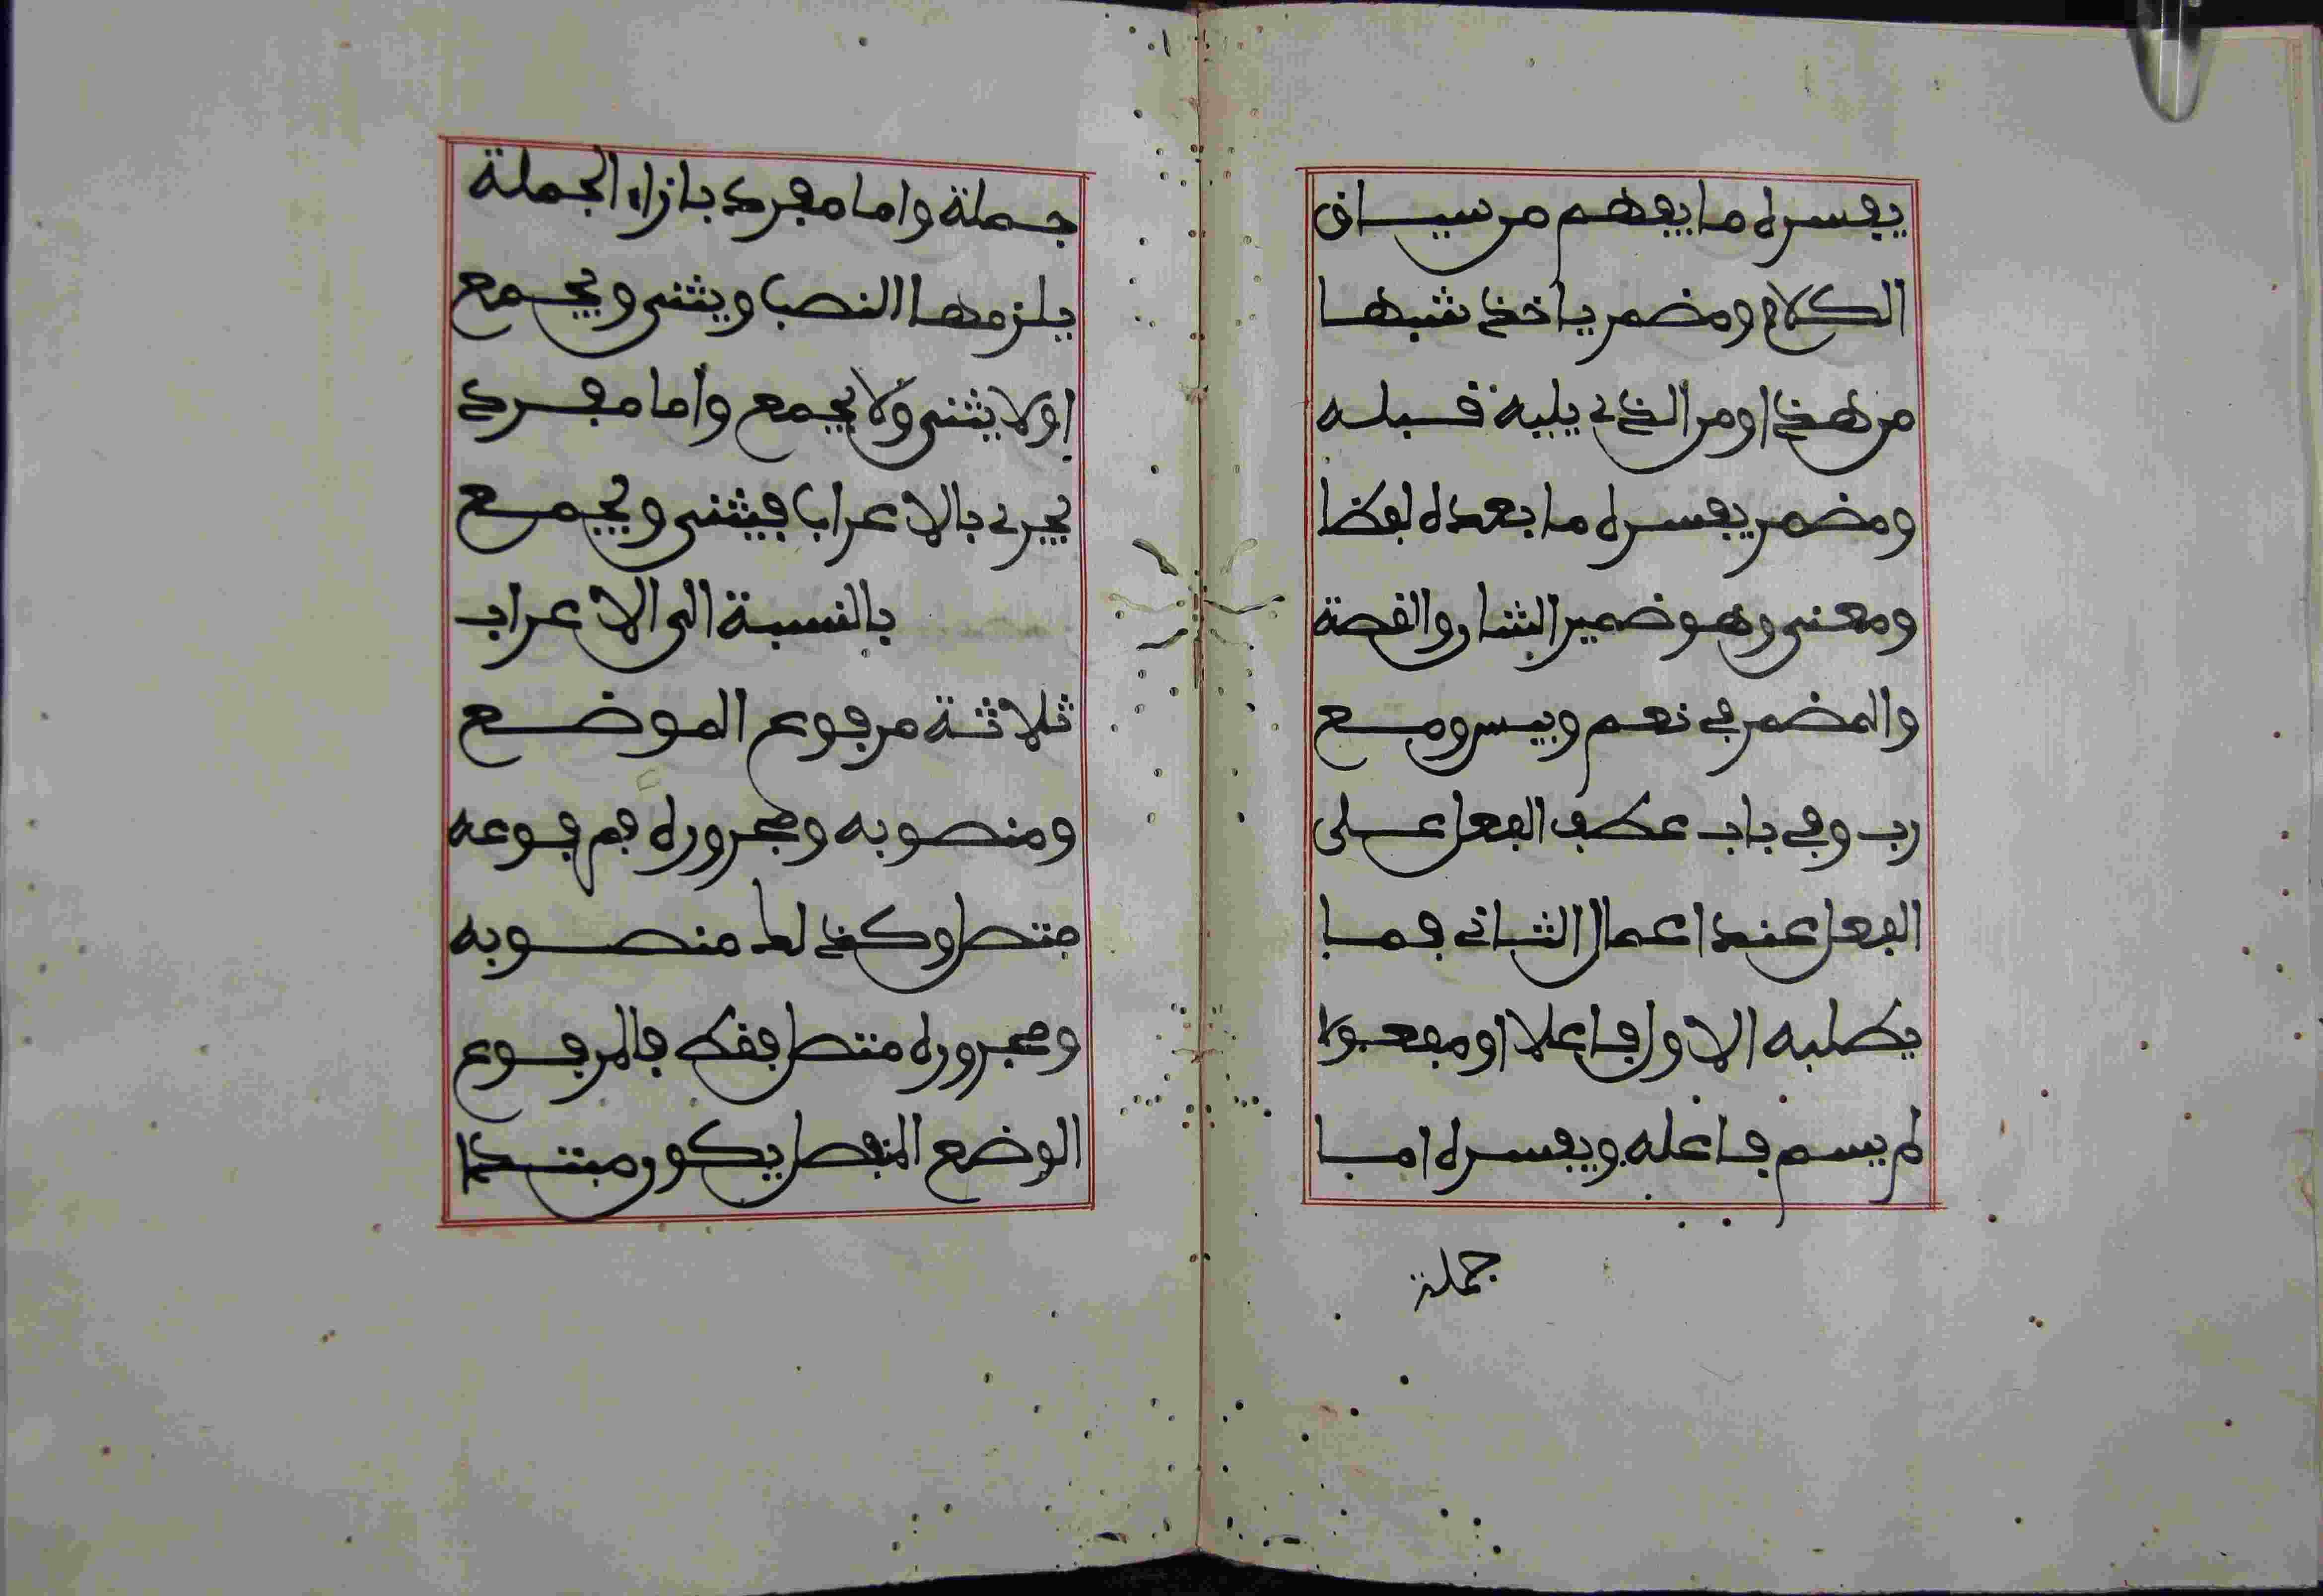 يفسره ما يفهم من سياق
الكلام ومضمر ياخذ شبها
من هذا ومن الذي يليه قبله
ومضمر يفسره ما بعده لفظا
ومعنى وهو ضمير الشان والقصة
والمضمر في نعم وبيس ومع
رب وفي باب عطف الفعل على
الفعل عند اعمال الثاني فما
يطلبه الاول فاعلا او مفعولا
لم يسم فاعله ويفسره اما
جملة
جملة واما مفرد بازاء الجملة
يلزمها النصب ويثنى ويجمع
اولا يثنى ولا يجمع واما مفرد
يجرى بالاعراب فيثنى ويجمع
بالنسبة الى الاعراب
ثلاثة مرفوع الموضع
ومنصوبه ومجروره فمرفوعه
متصل وكذلك منصوبه
ومجروره متصل فقط فالمرفوع
الوضع المنفصل يكون مبتدا